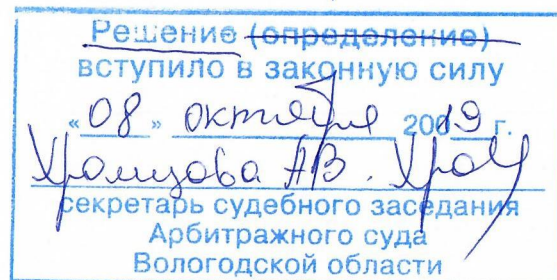 Решение (определение)
вступило в законную силу
«08» октября 20019 г.
Хромцова А.В.
секретарь судебного заседания
Арбитражного суда
Вологодской области